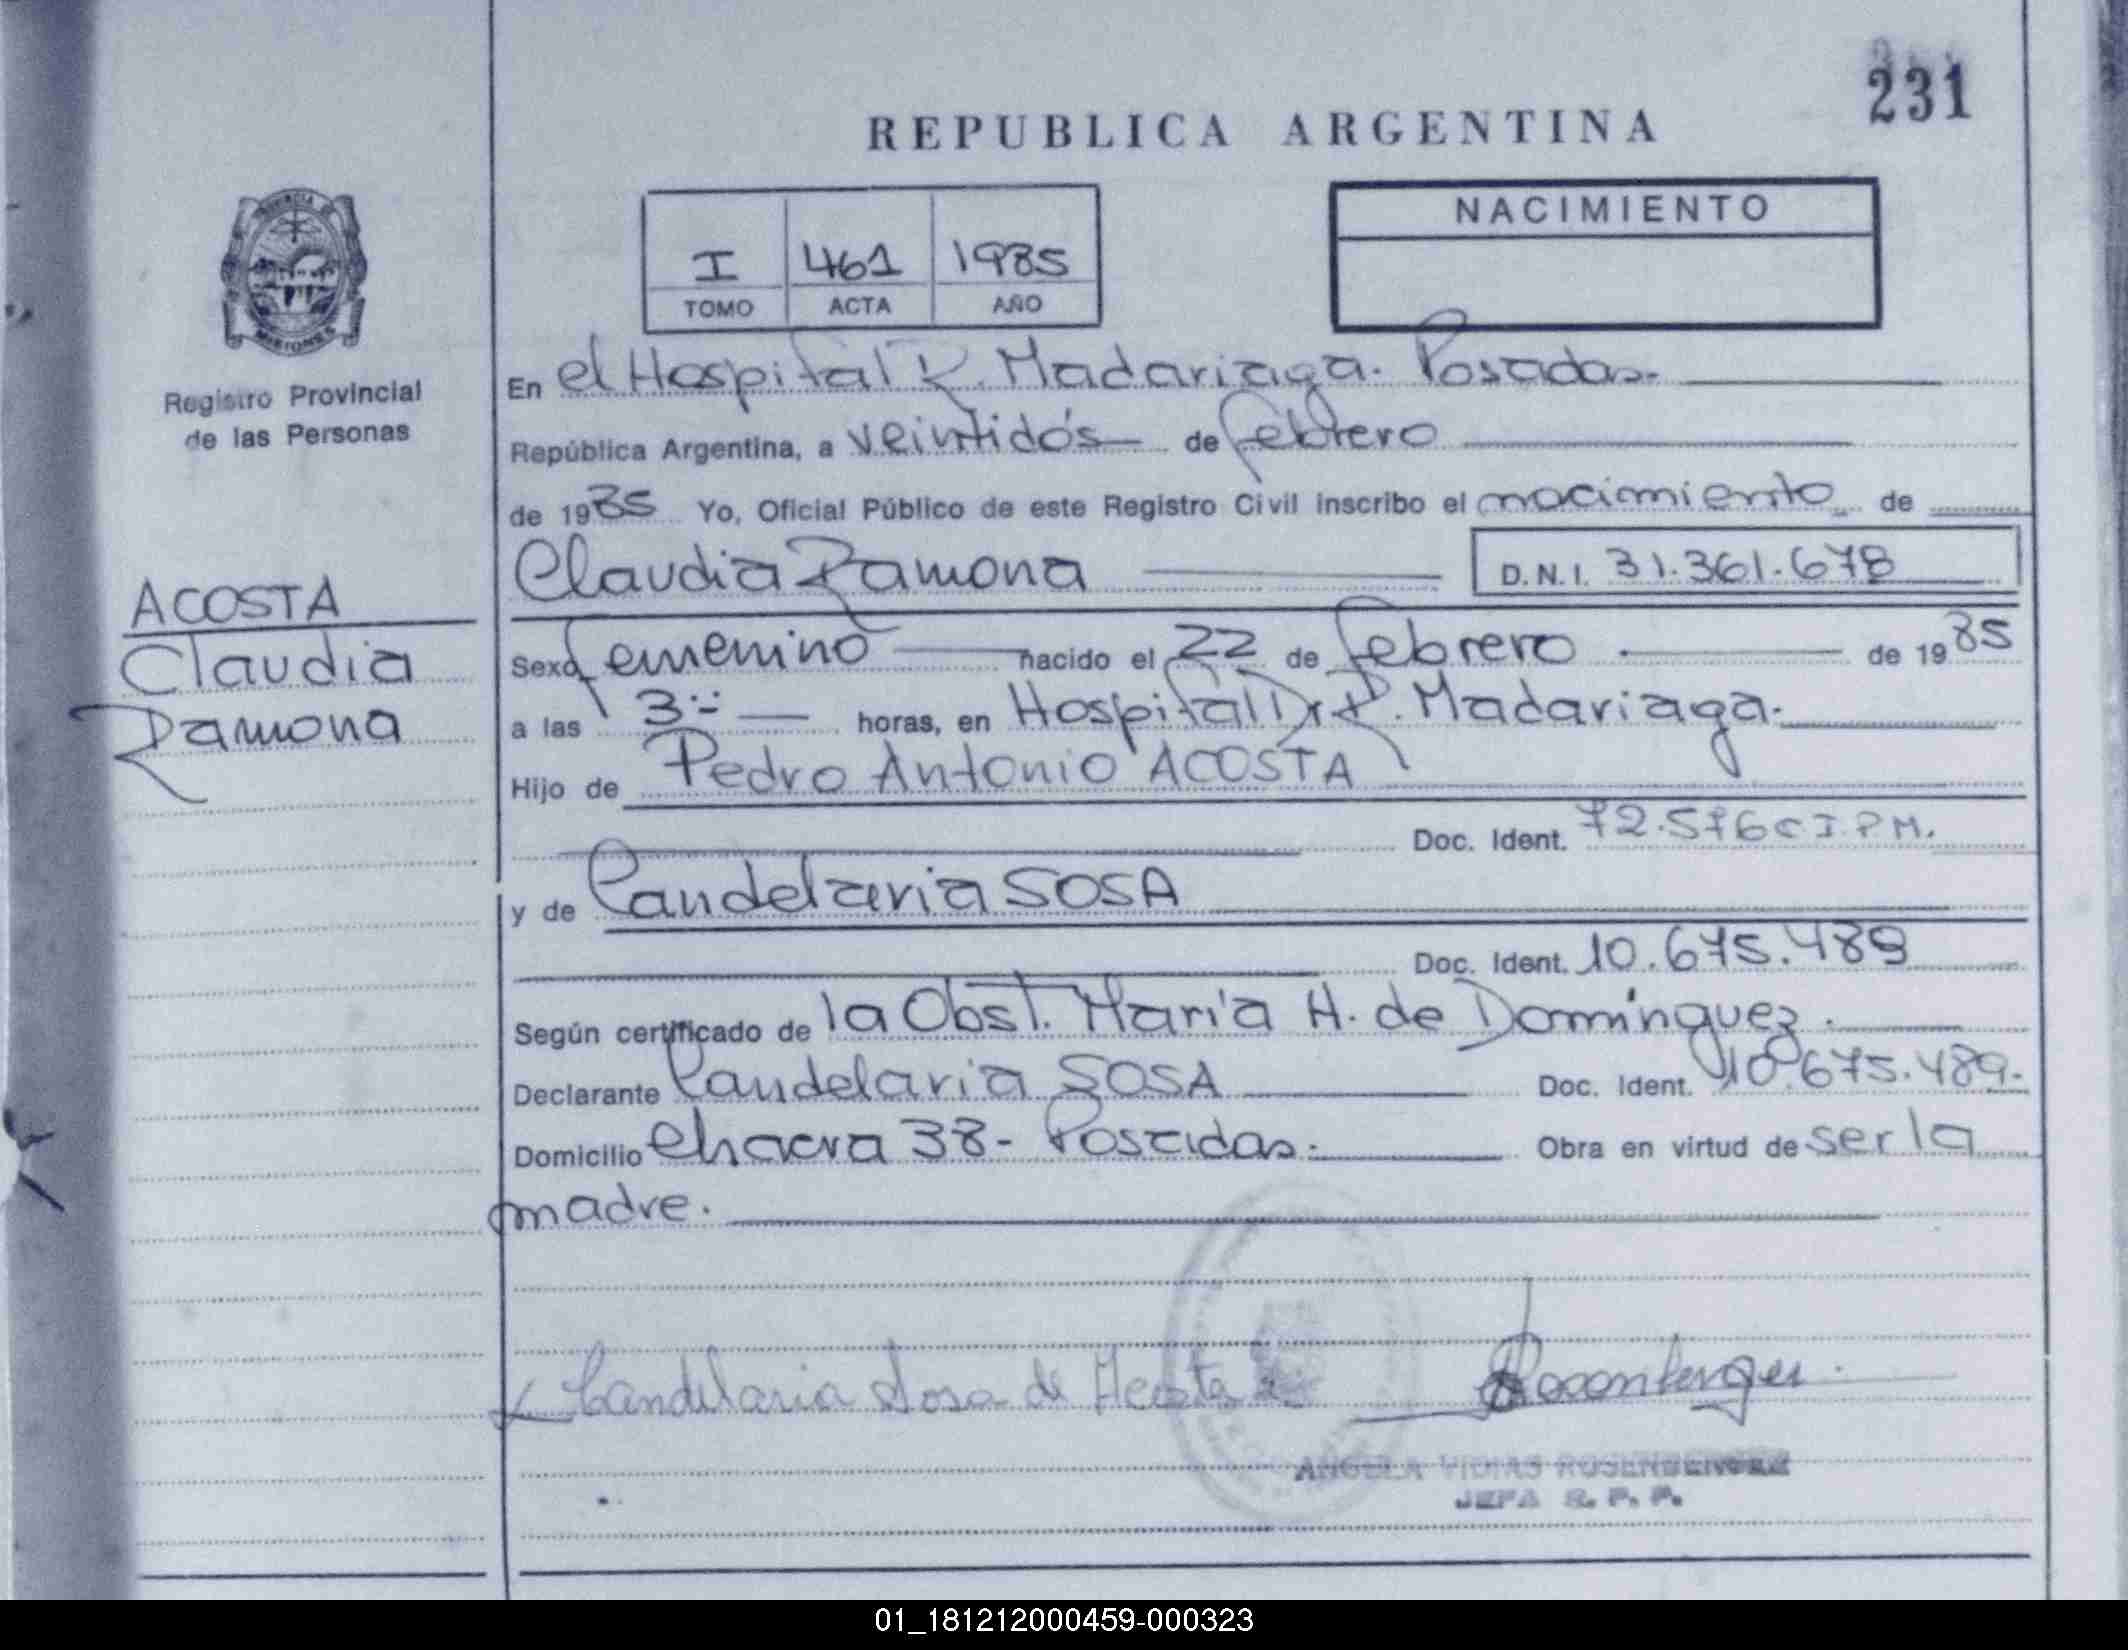 231
REPUBLICA ARGENTINA
NACIMIENTO
I 461 1985
TOMO ACTA AÑO
MISIONES
Registro Provincial
de las Personas
ACOSTA
Claudia
Ramona
En el Hospital R. Madariaga. Posadas.
República Argentina, a veintidós de febrero
de 1985 Yo, Oficial Público de este Registro Civil inscribo el nacimiento de
Claudia Ramona D.N.I. 31.361.678
Sexo femenino nacido el 22 de febrero de 1985
a las 3:- horas, en Hospital Dr R. Madariaga.
Hijo de Pedro Antonio ACOSTA
Doc. Ident. 72.576 C.I.P.M.
y de Candelaria SOSA
Doc. Ident. 10.675.489
Según certificado de la Obst. María H. de Domínguez.
Declarante Candelaria SOSA Doc. Ident. 10.675.489.
Domicilio Chacra 38 - Posadas. Obra en virtud de ser la
madre.
Candelaria Sosa de Acosta
Rosenberger
ANGELA ROSENBERGER
JEFA R. P. P.
01_181212000459-000323